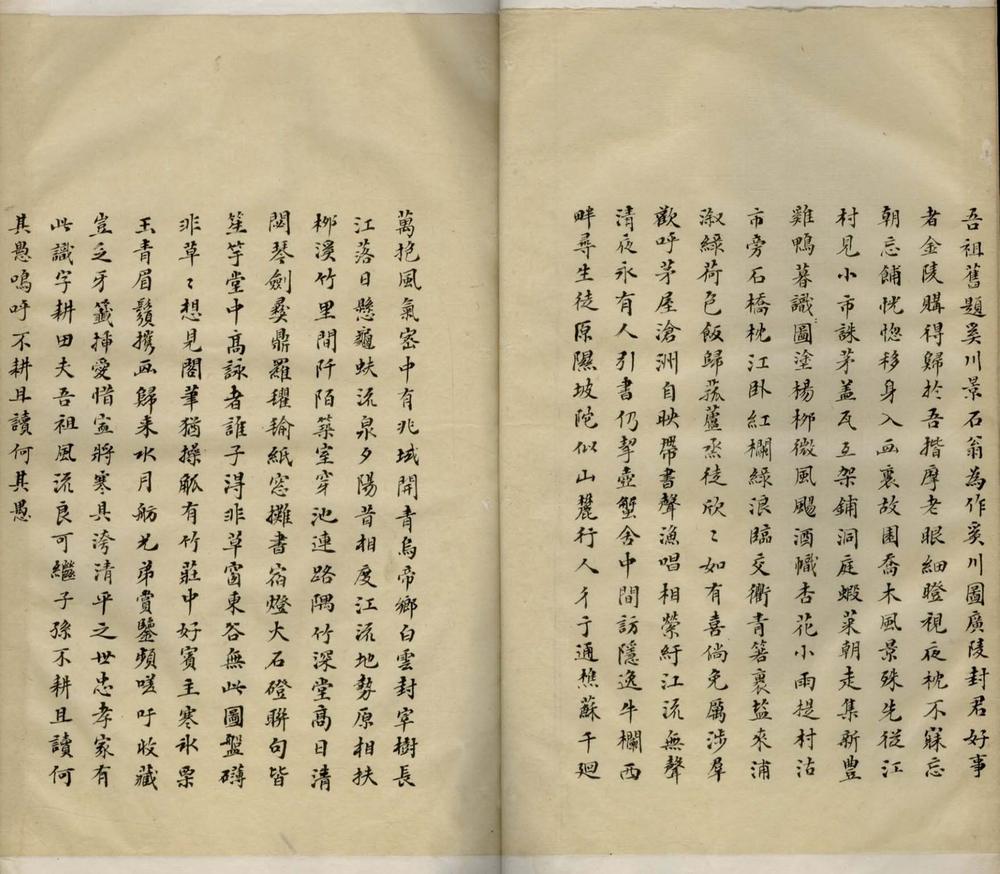 吾祖舊題奚川景石翁為作奚川圖廣陵封君好事
者金陵購得歸於吾揩摩老眼細瞪視夜枕不寐忘
朝忘餔恍惚移身入画裏故園喬木風景殊先從江
村見小市誅茅蓋瓦互架鋪洞庭蝦菜朝走集新豐
雞鴨暮識圖塗楊栁微風颺酒幟杏花小雨提村沽
市旁石橋枕江卧紅欄綠浪臨交衢青箬裹鹽來浦
溆綠荷包飯歸菰蘆烝徒欣〻如有喜倘免厲涉羣
歡呼茅屋滄洲自映帶書聲漁唱相縈紆江流無聲
清夜永有人引書仍挈壺蟹舍中間訪隱逸牛欄西
畔尋生徒原隰坡陀似山麓行人彳亍通樵蘇千廻
萬抱風氣宻中有兆域開青烏帝鄉白雲封宰樹長
江落日懸龜蚨流泉夕陽昔相度江流地勢原相扶
栁溪竹里間阡陌築室穿池連路隅竹深堂高日清
閟琴劍彝鼎羅璀瑜紙窓攤書宿燈火石磴聯句皆
笙竽堂中髙詠者誰子淂非草窗東谷無此圖盤礴
非草〻想見閣筆猶操觚有竹莊中好賓主寒氷栗
玉青眉鬚携画歸来水月舫兄弟賞鑒頻嗟吁收藏
豈乏牙籤揷愛惜寍將寒具洿清平之世忠孝家有
此識字耕田夫吾祖風流良可繼子孫不耕且讀何
其愚嗚呼不耕且讀何其愚